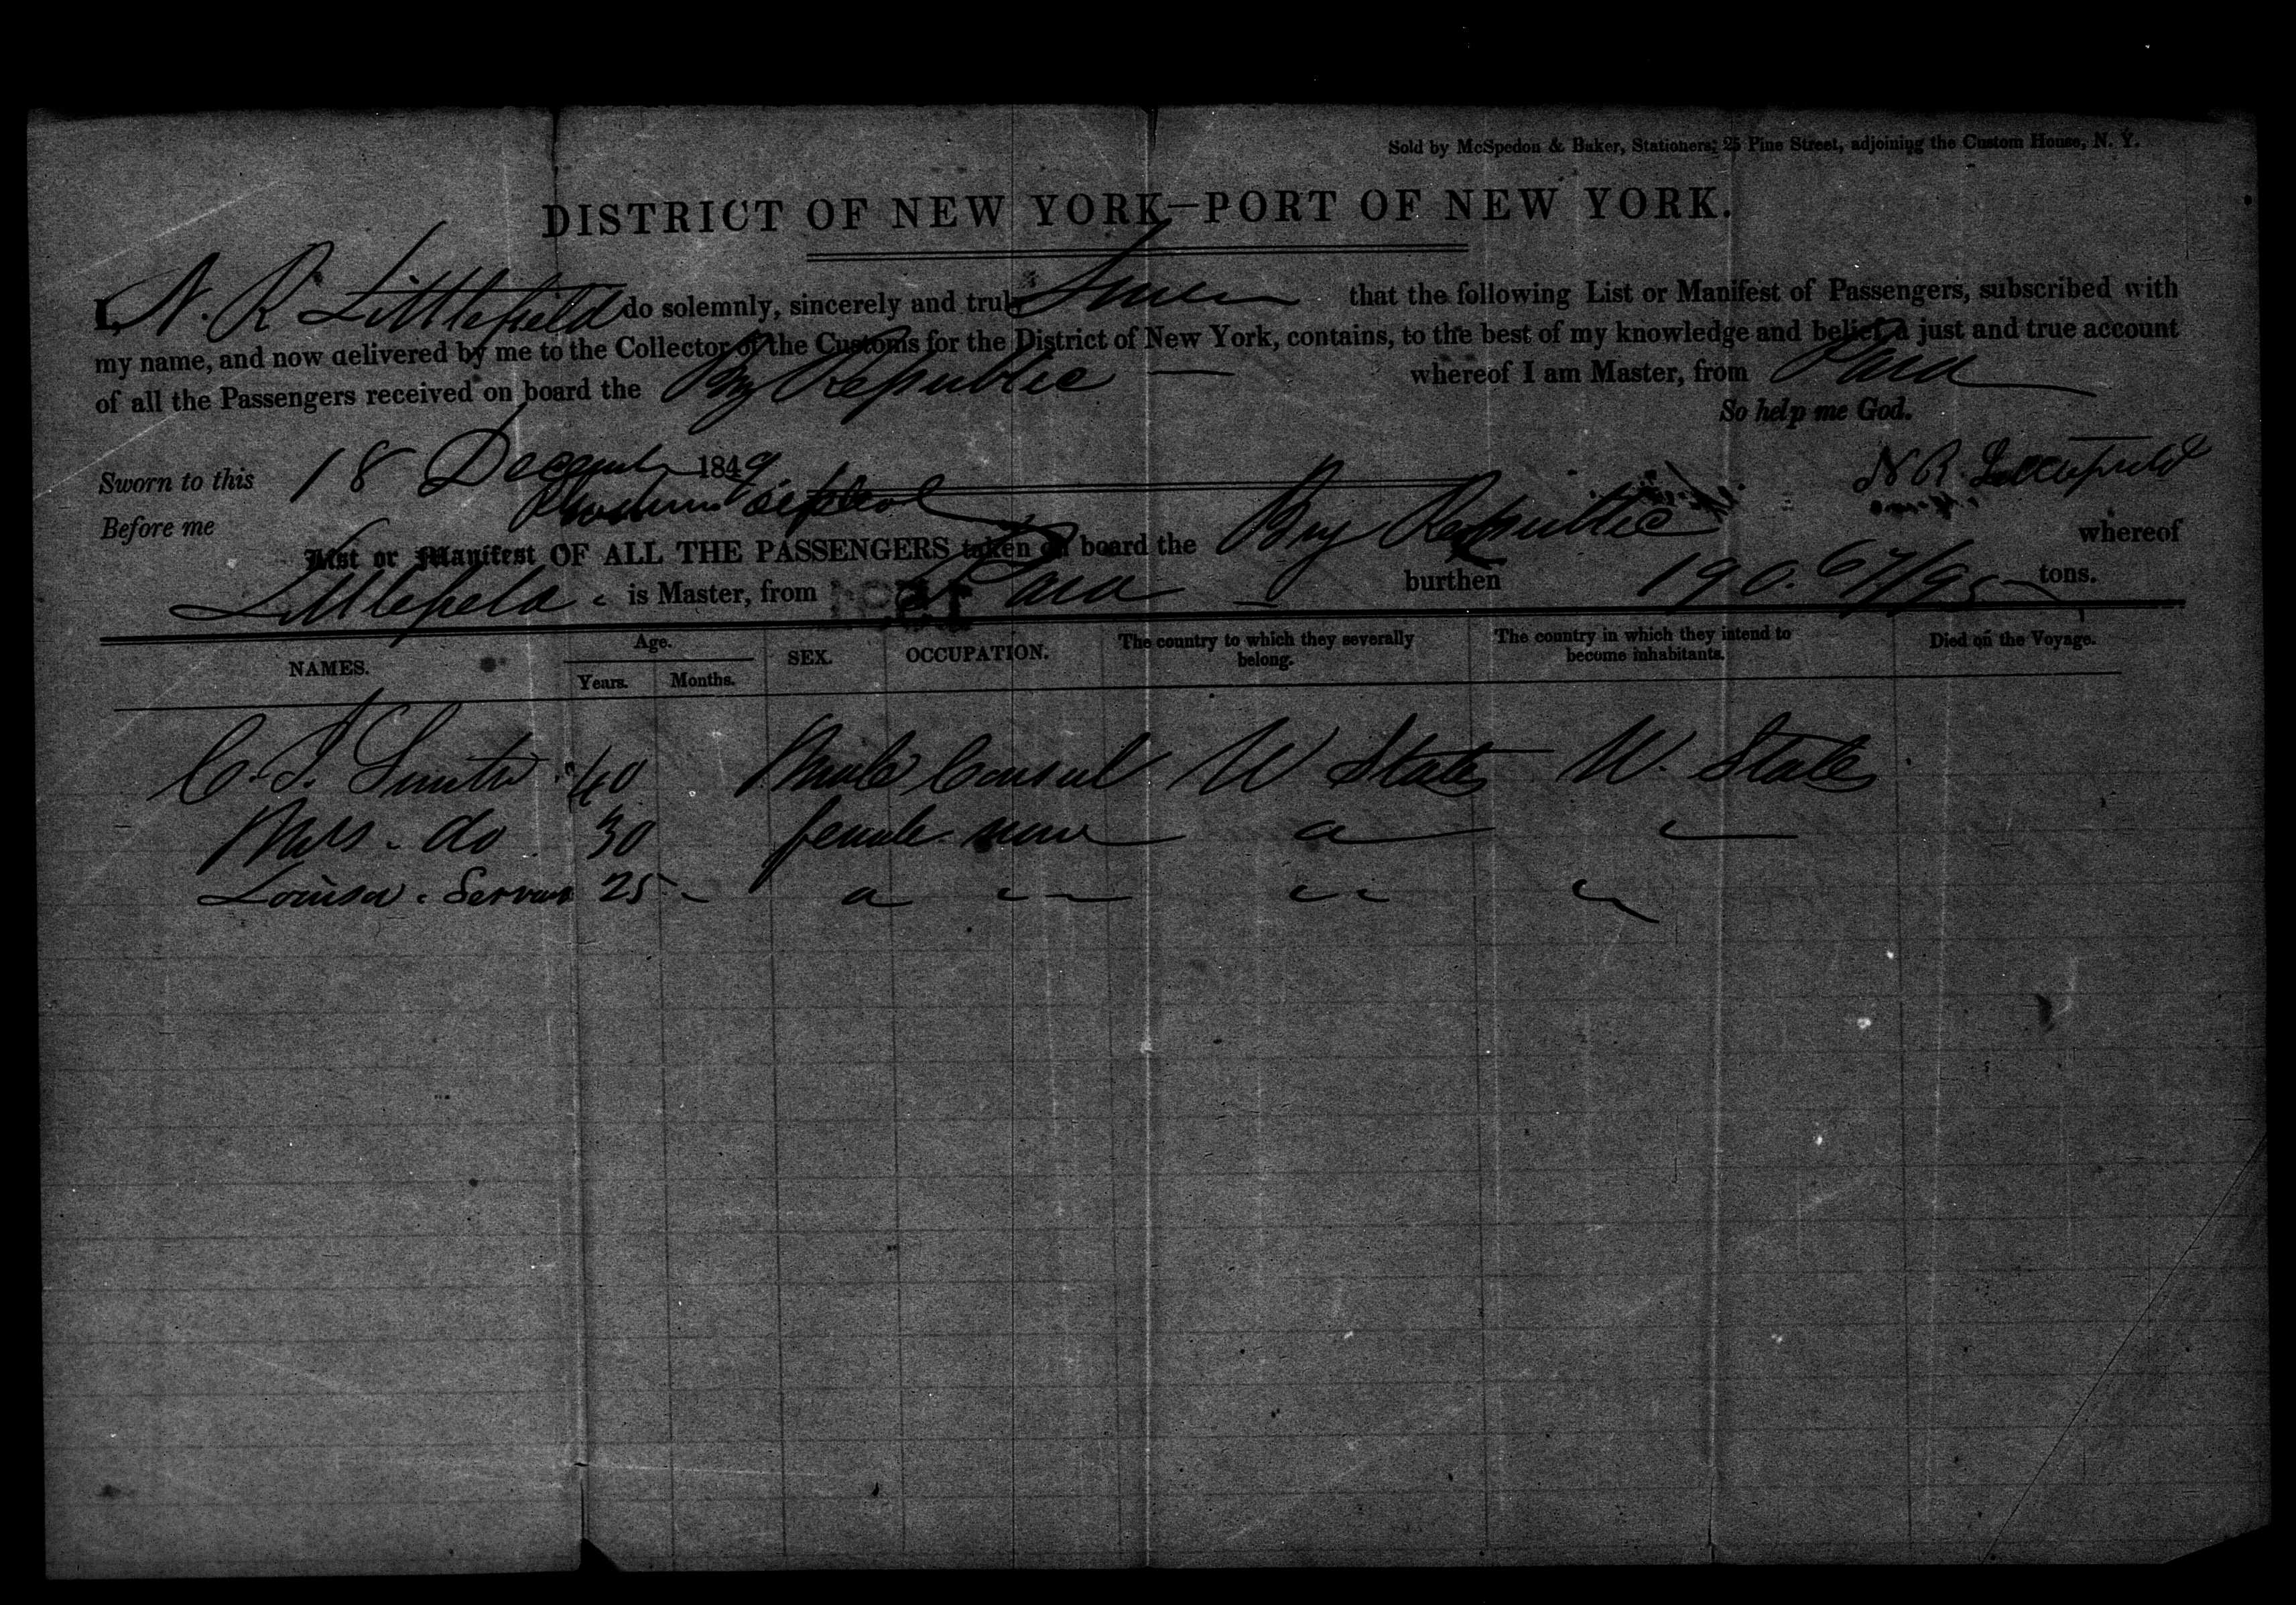 Sold by McSpedon & Baker, Stationers, 25 Pine Street, adjoining the Custom House, N. Y.
DISTRICT OF NEW YORK—PORT OF NEW YORK.
I, N. R. Littlefield do solemnly, sincerely and truly Swear that the following List or Manifest of Passengers, subscribed with
my name, and now delivered by me to the Collector of the Customs for the District of New York, contains, to the best of my knowledge and belief, a just and true account
of all the Passengers received on board the Brig Republic — whereof I am Master, from Para
So help me God.
Sworn to this 18 December 1849 N R Littlefield
Before me
List or Manifest OF ALL THE PASSENGERS taken on board the Brig Republic whereof
Littlefield is Master, from Para burthen 190. 67/95 tons.
NAMES. Age. Years. Months. SEX. OCCUPATION. The country to which they severally belong. The country in which they intend to become inhabitants. Died on the Voyage.
C. Smith 40 Male Consul U States U. States
Mrs. do 30 female none
Louisa Servant 25